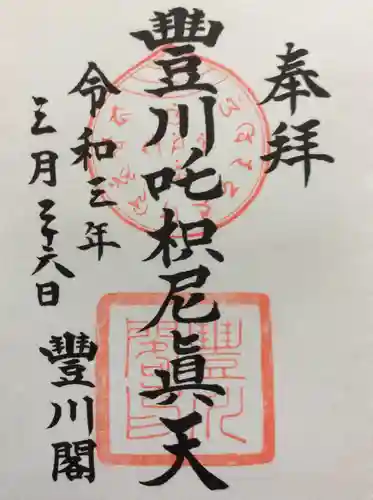 奉拝
豐川吒枳尼眞天
令和三年
三月二十六日
豐川閣
豐川閣印